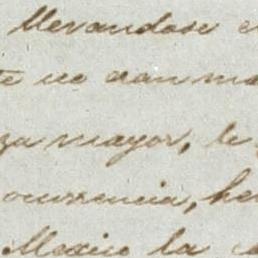 llevandose
te no
za mayor, le
ocurrencia, he
Mexico la